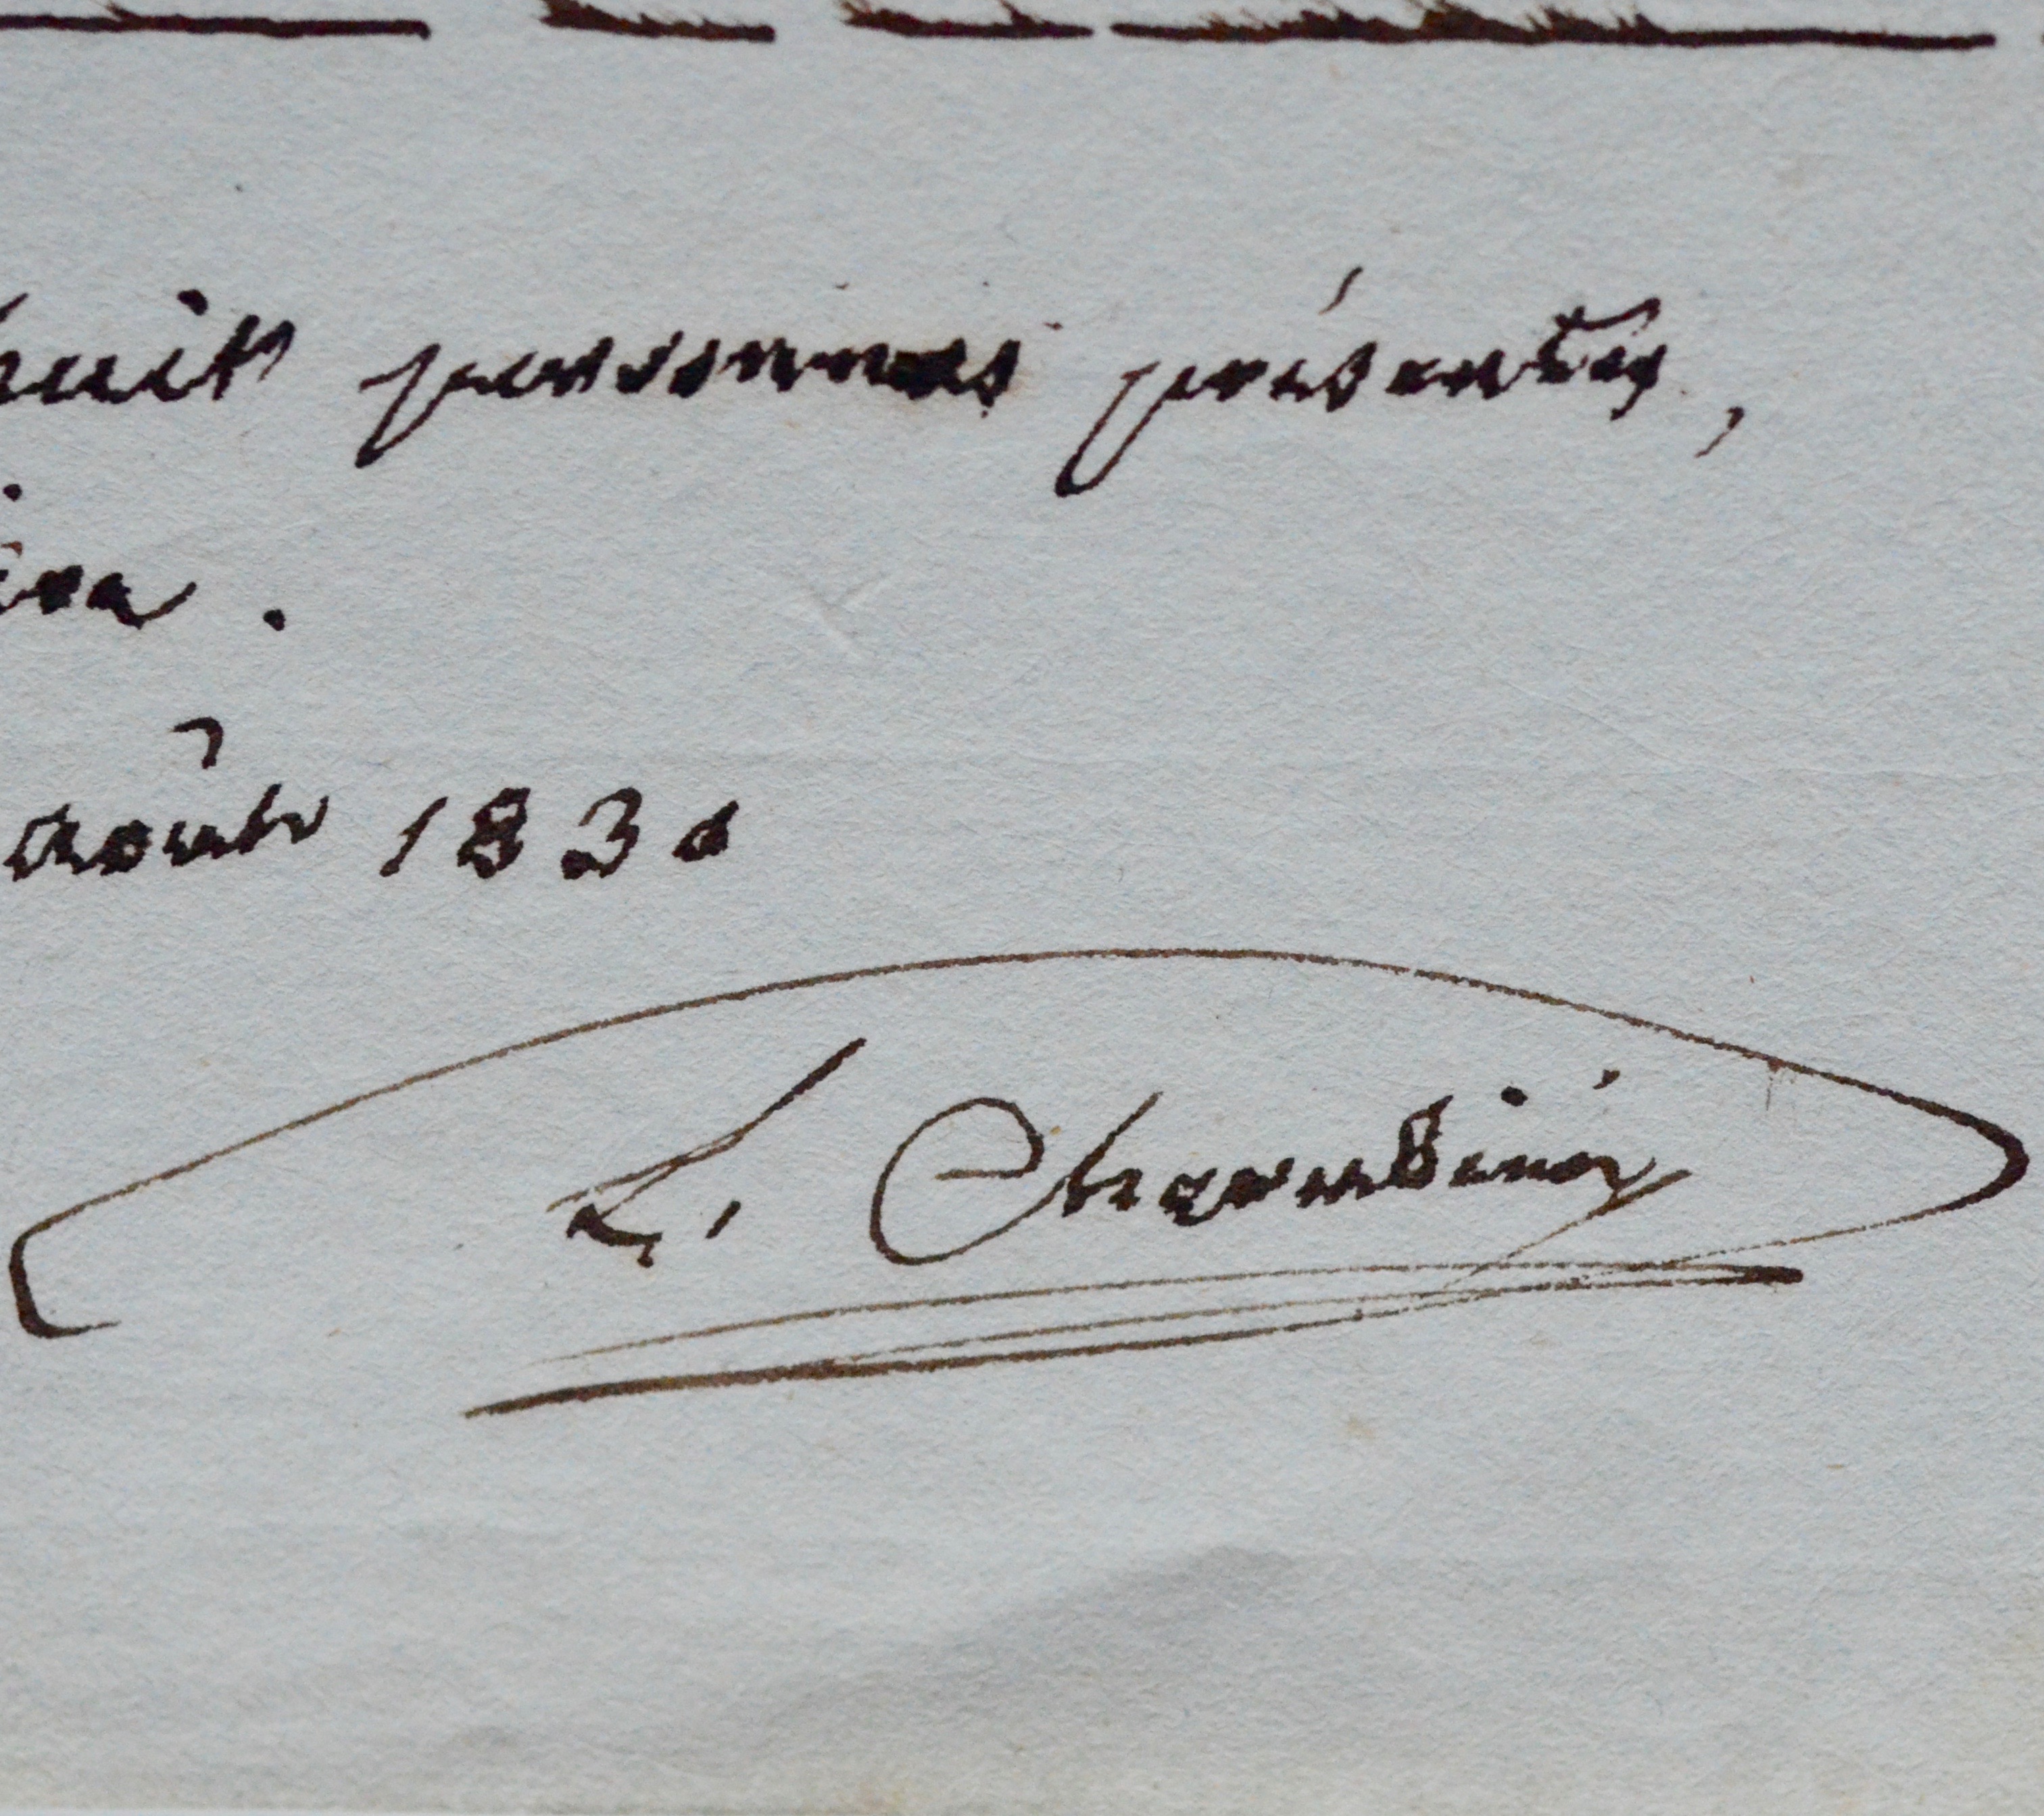 huit personnes présentes,
août 1830
L. Cherubini